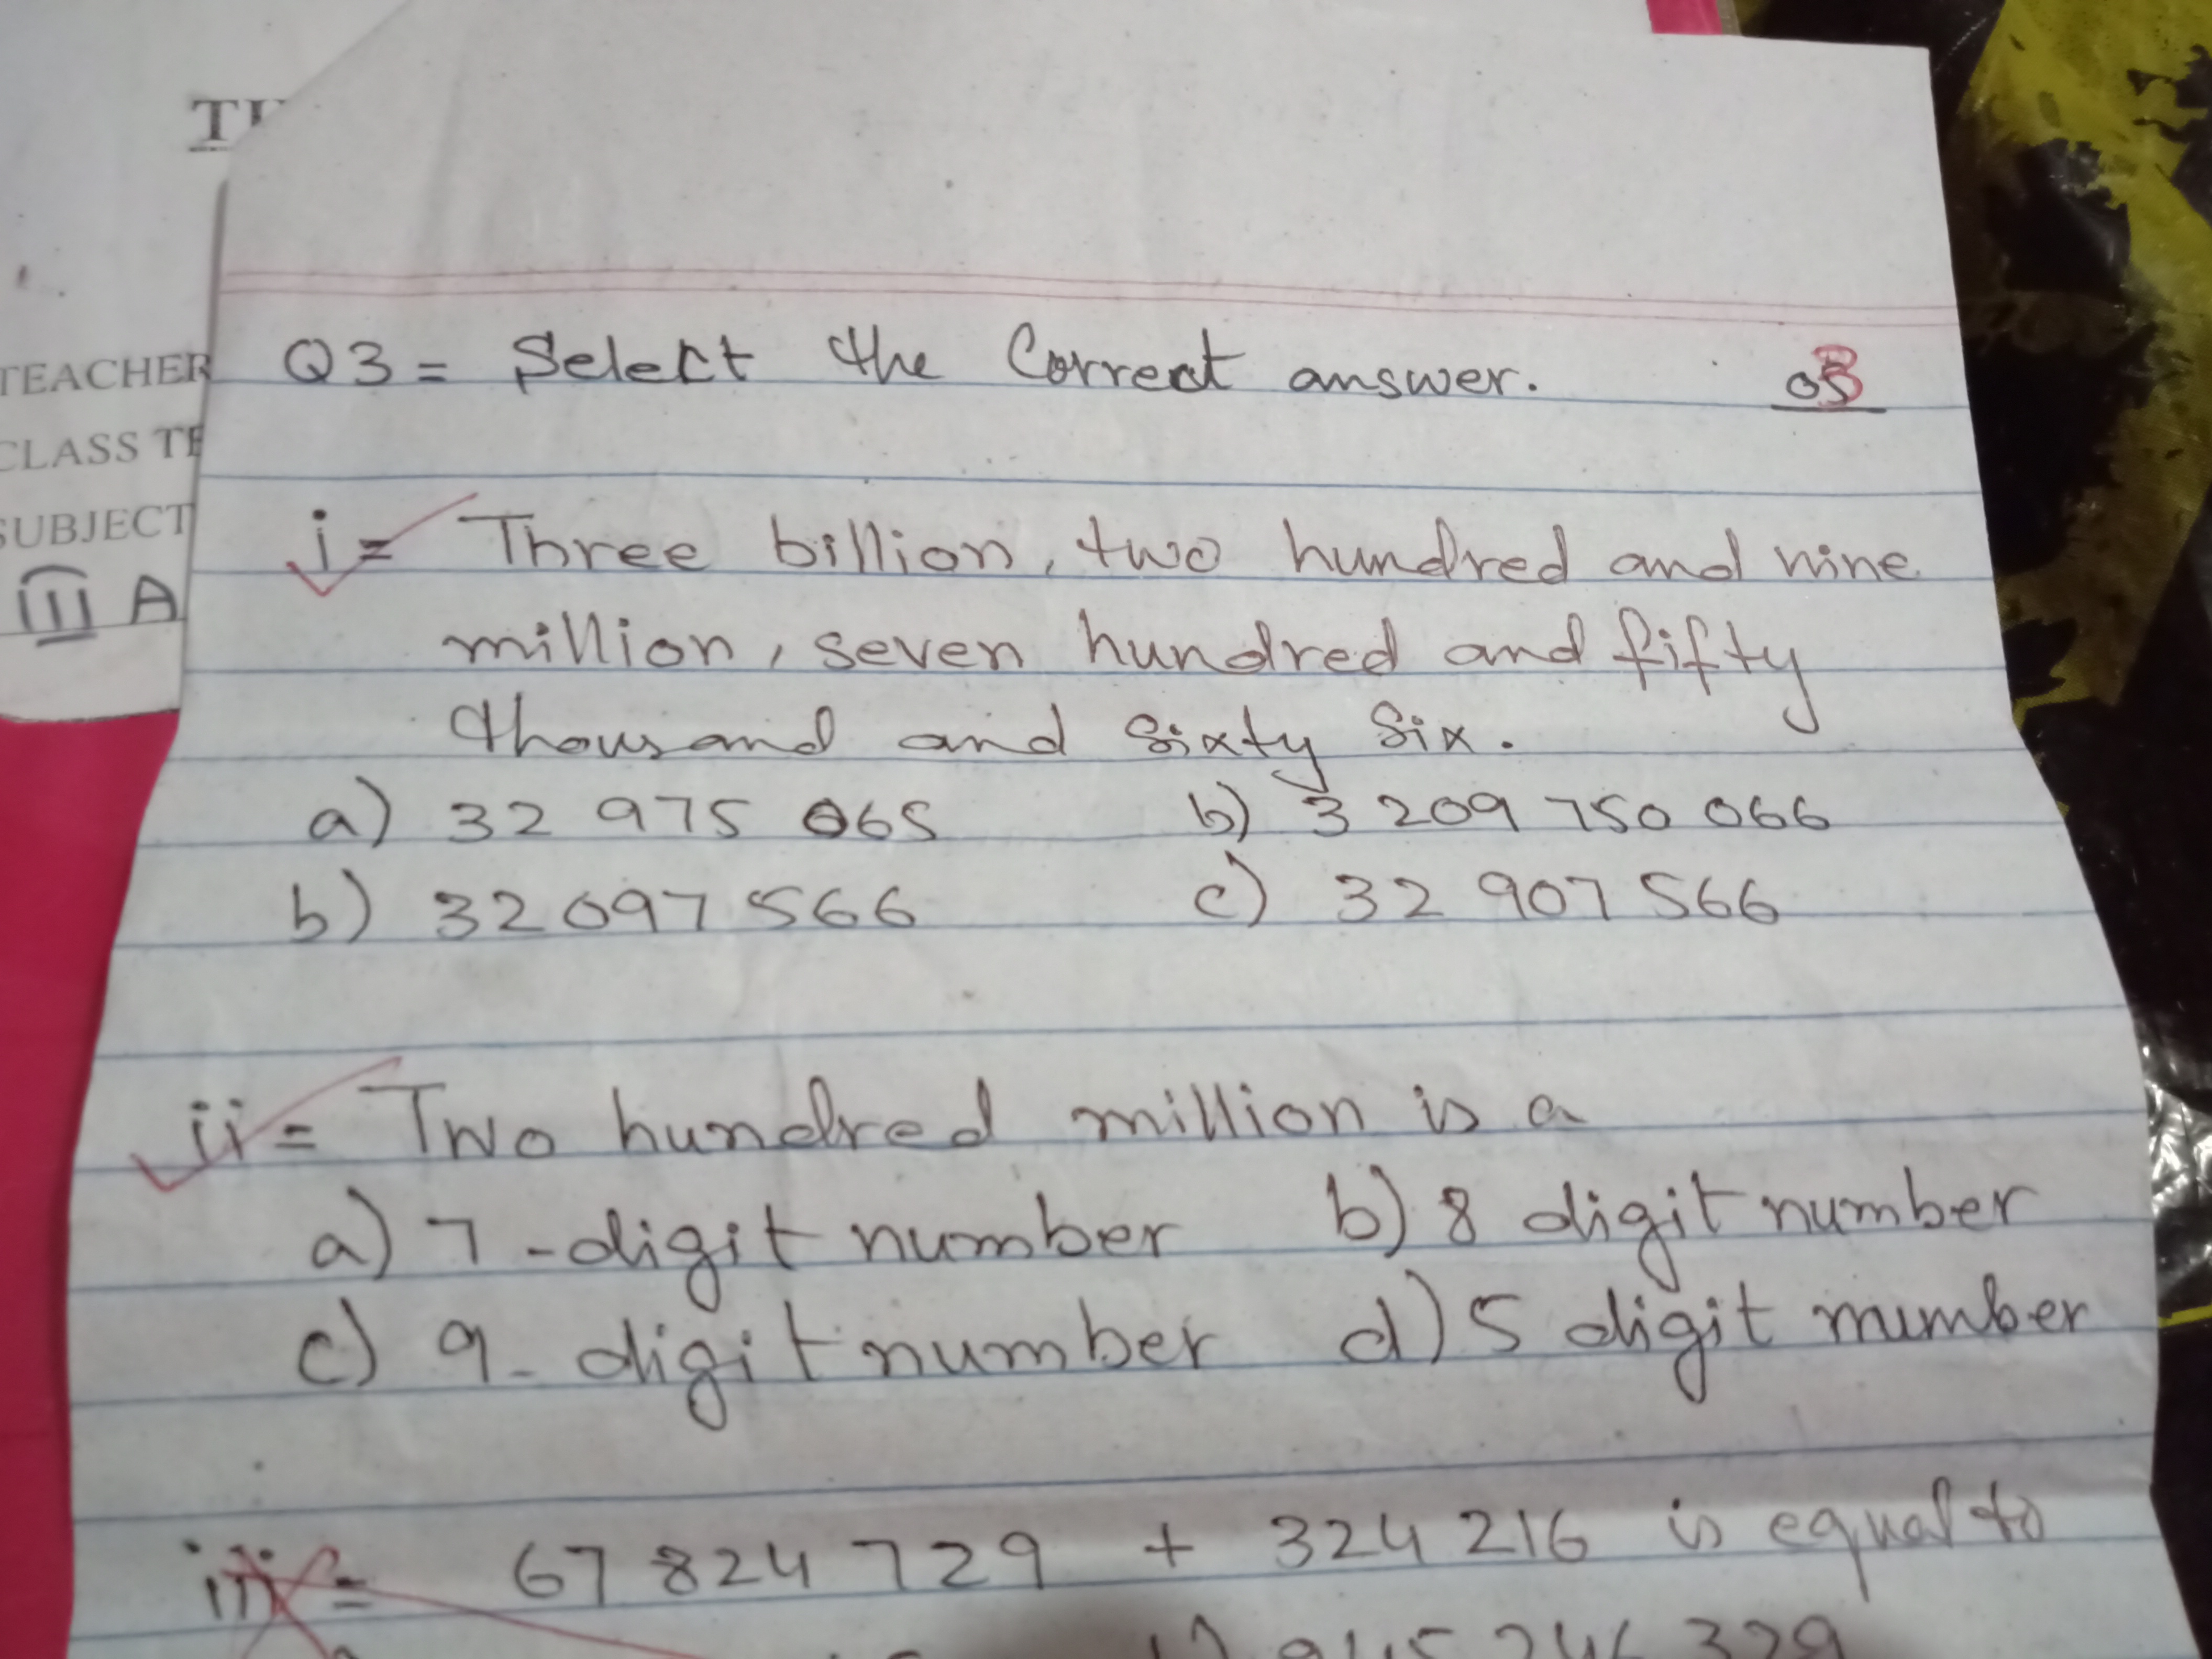 TEACHER
CLASS TE
SUBJECT
III A
Q3 = Select the Correct answer. 05
i = Three billion, two hundred and nine
million, seven hundred and fifty
thousand and sixty six.
a) 32 975 065 b) 3 209 750 066
b) 32 097 566 c) 32 907 566
ii = Two hundred million is a
a) 7 - digit number b) 8 digit number
c) 9 - digit number d) 5 digit number
iii = 67 824 729 + 324 216 is equal to